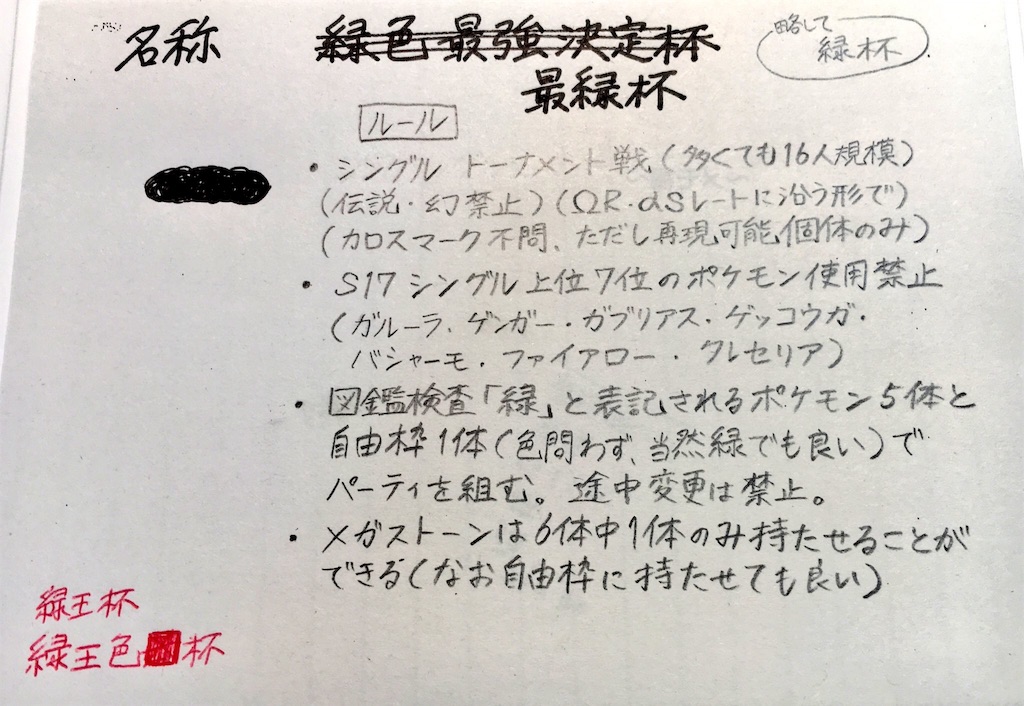 名称 緑色最強決定杯
略して
緑杯
最緑杯
ルール
・シングル トーナメント戦(多くても16人規模)
(伝説・幻禁止)(ΩR・αSレートに沿う形で)
(カロスマーク不問、ただし再現可能個体のみ)
・S17シングル上位7位のポケモン使用禁止
(ガルーラ、ゲンガー・ガブリアス・ゲッコウガ・
バシャーモ・ファイアロー・クレセリア)
・図鑑検査「緑」と表記されるポケモン5体と
自由枠1体(色問わず、当然緑でも良い)で
パーティを組む。途中変更は禁止。
・メガストーンは6体中1体のみ持たせることが
できる(なお自由枠に持たせても良い)
緑王杯
緑王色杯